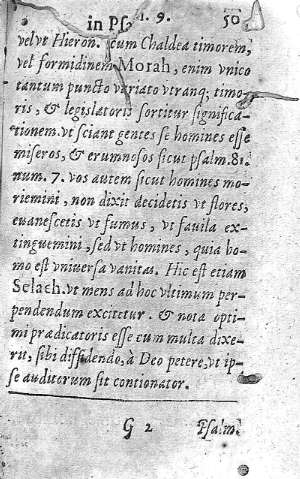 in Ps. 9. 50
velut Hieron. cum Chaldea timorem,
vel formidinem MORAH, enim vnico
tantum puncto variato vtranq; timo
ris, & legislatoris sortitur significa-
tionem. vt sciant gentes se homines esse
miseros, & erumnosos sicut psalm. 81.
num. 7. vos autem sicut homines mo-
riemini, non dixit decidetis vt flores,
euanescetis vt fumus, vt fauila ex-
tinguemini, sed vt homines, quia ho-
mo est vniuersa vanitas. Hic est etiam
Selach. vt mens ad hoc vltimum per-
pendendum excitetur. & nota opti-
mi prædicatoris esse cum multa dixe-
rit, sibi diffidendo, à Deo petere, vt ip-
se auditorum sit contionator.
G 2 Psalm.